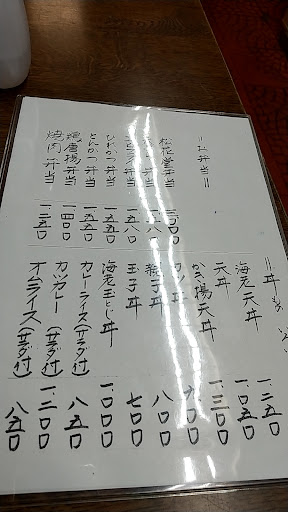 =お弁当=
松花堂弁当
弁当
弁当
ひれかつ弁当 一.五五〇
とんかつ弁当 一.五五〇
鶏唐揚弁当
焼肉弁当 一.二五〇
=丼もの
海老天丼 一.二五〇
天丼 一.〇五〇
かき揚天丼 一.三〇〇
カツ丼 九〇〇
親子丼 八〇〇
玉子丼 七〇〇
海老玉とじ丼 一.〇〇〇
カレーライス(サラダ付) 八五〇
カツカレー(サラダ付) 一.二〇〇
オムライス(サラダ付) 八五〇